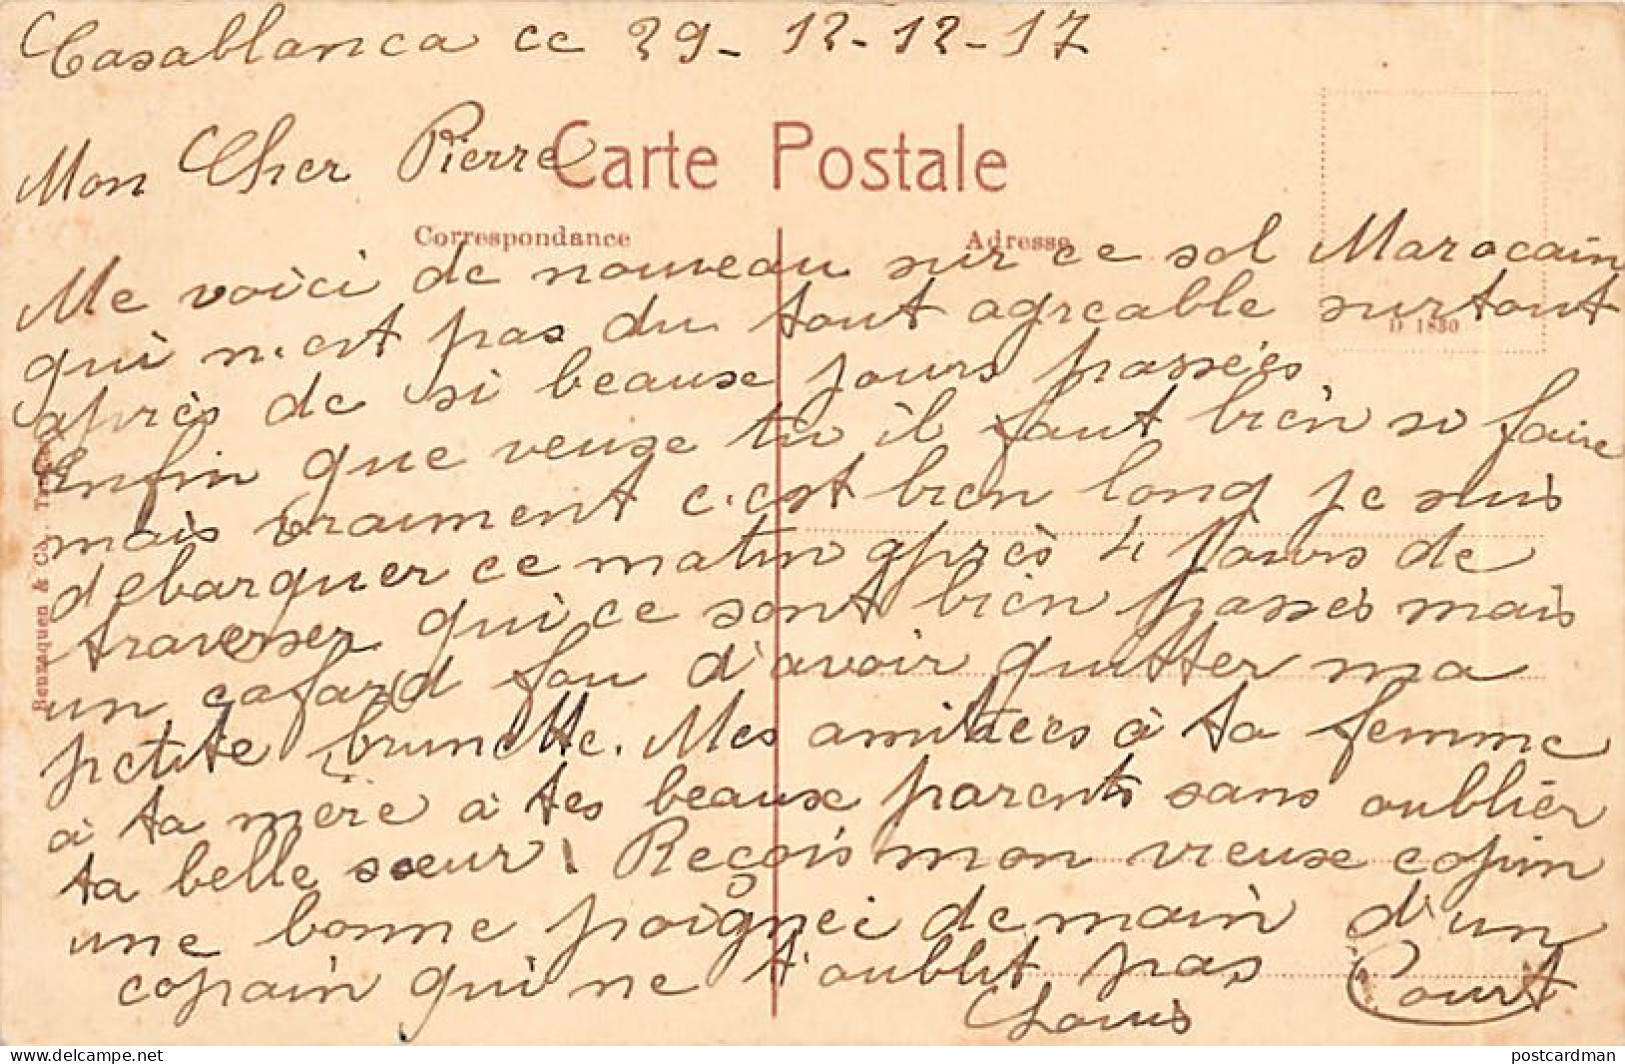 Casablanca ce 29-12-12-17
Mon Cher Pierre
Carte Postale
Correspondance
Adresse
D 1830
Me voici de nouveau sur ce sol Marocain
qui n'est pas du tout agreable surtout
après de si beause jours passées
enfin que veuse tu il faut bien si faire
mais vraiment c'est bien long je suis
debarquer ce matin après 4 jours de
traverser qui ce sont bien passès mais
un cafard fou d'avoir quitter ma
petite brunette. Mes amitiees à ta femme
à ta mère à tes beause parents sans oublier
ta belle sœur. Reçois mon vieuse copin
une bonne poignei de main d'un
copain qui ne t'oublit pas
Louis Court
Benzaquen & Co.
postcardman